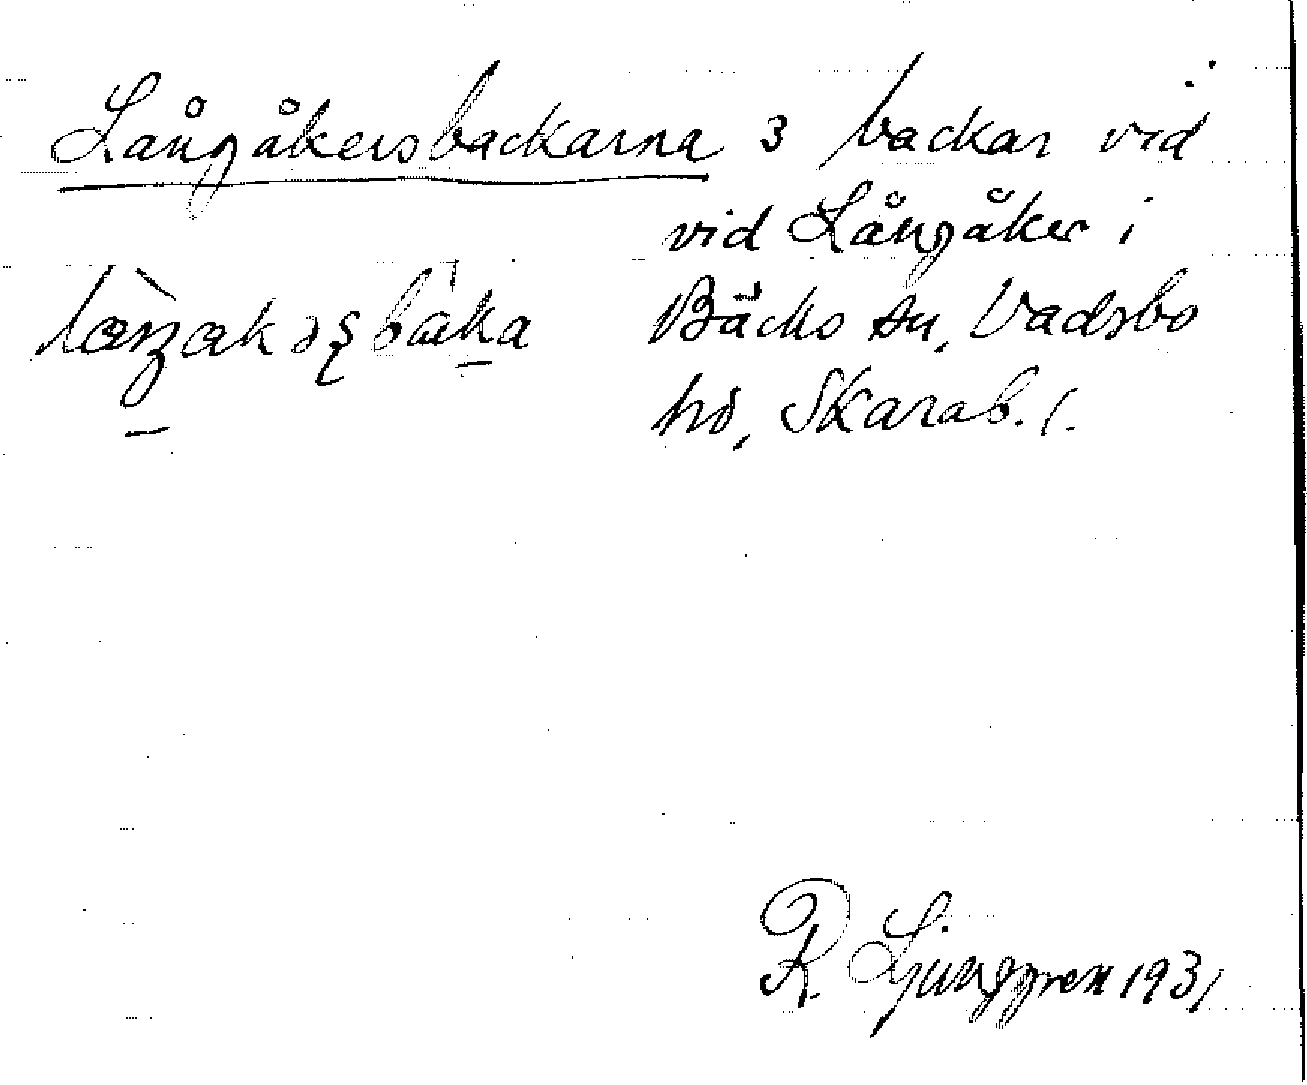 Långåkersbackarna 3 backar vid
vid Långåker i
Bäcks sn, Vadsbo
hd, Skarab. l.
R. Ljunggren 1931